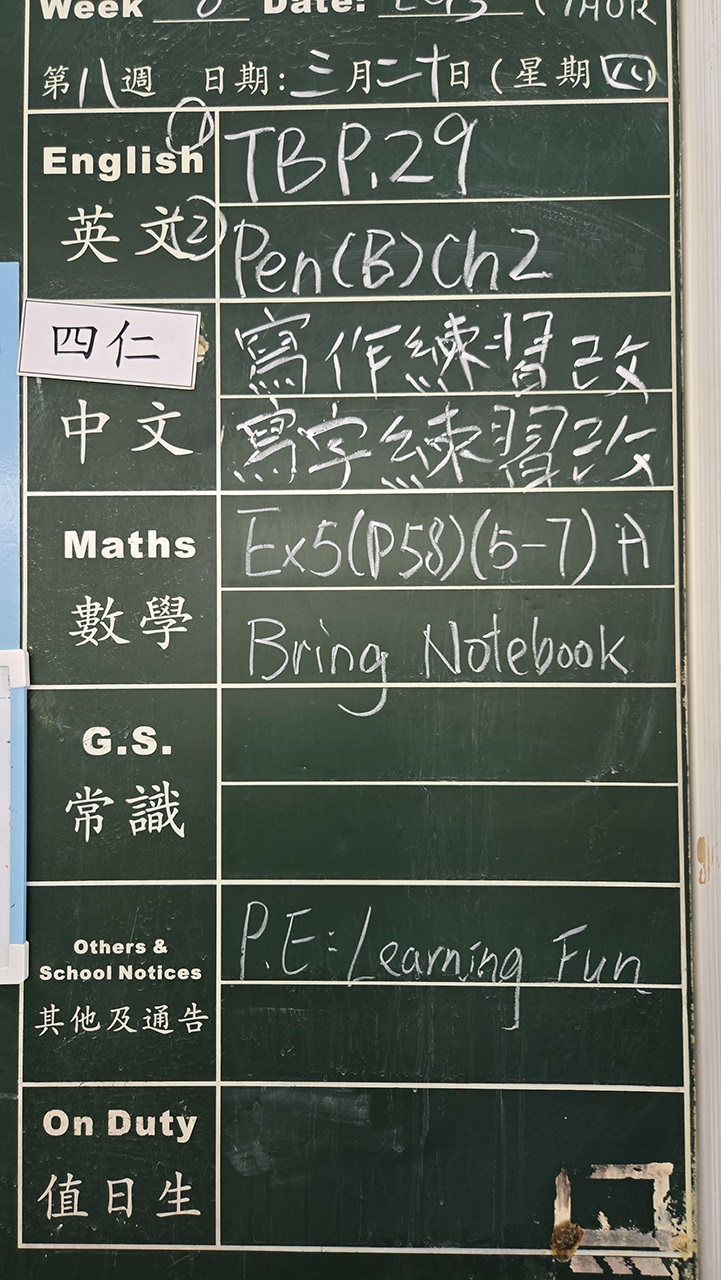 Week 8 Date: 20/3 (THUR
第八週 日期:三月二十日(星期四)
English ① TBP.29
英文 ② Pen(B)Ch2
四仁 寫作練習改
中文 寫字練習改
Maths Ex5(P58)(5-7) A
數學 Bring Notebook
G.S.
常識
Others & P.E: Learning Fun
School Notices
其他及通告
On Duty
值日生